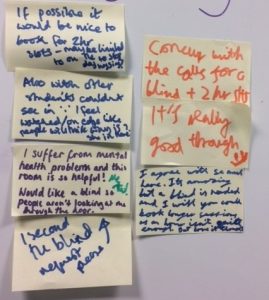 If possible it
would be nice to
book for 2hr
slots - maybe limited
to one 2hr slot
Also wish other
students couldn't
see in - I feel
watched/on edge like
people will think
I suffer from mental
health problems and this
room is so helpful!
Would like a blind so
people aren't looking at me
through the door.
I second
the blind
request
please
Concur with
the calls for a
blind + 2hr slots
It's really
good though
I agree with
here. It's amazing
but a blind is needed
and I wish you could
book longer sessions
an hour isn't quite
enough. But love it